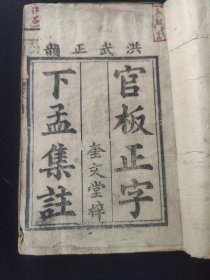 洪武正韻
官板正字
奎文堂梓
下孟集註